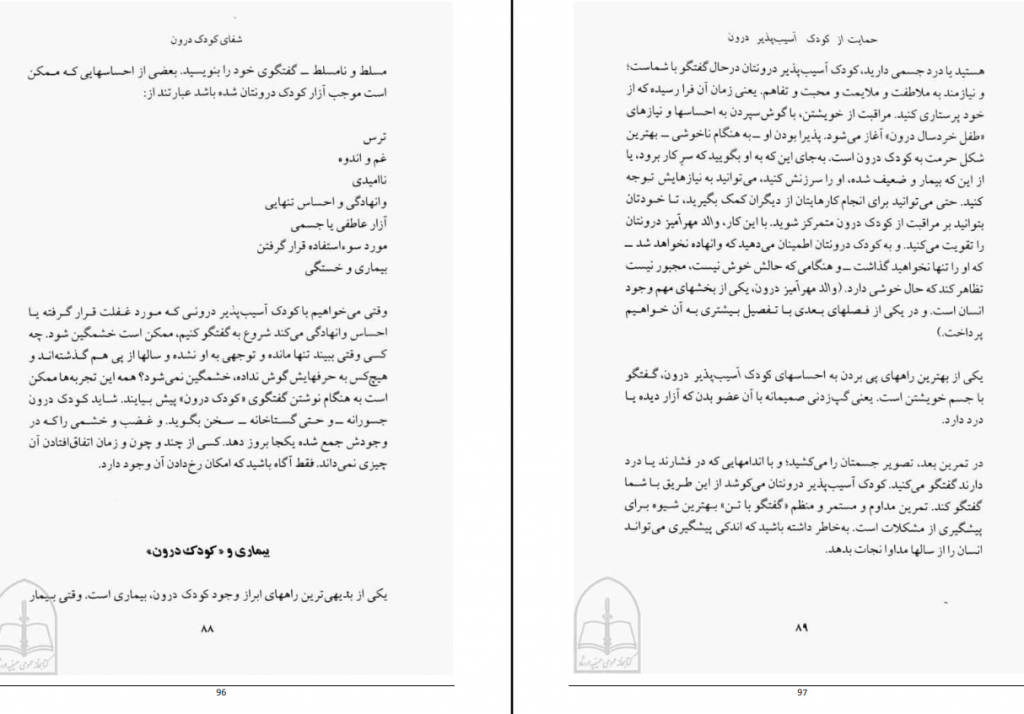 شفای کودک درون
مسلط و نامسلط ــ گفتگوی خود را بنویسید. بعضی از احساسهایی که ممکن
است موجب آزار کودک درونتان شده باشد عبارتند از:
ترس
غم و اندوه
ناامیدی
وانهادگی و احساس تنهایی
آزار عاطفی یا جسمی
مورد سوءاستفاده قرار گرفتن
بیماری و خستگی
وقتی می‌خواهیم با کودک آسیب‌پذیر درونی که مورد غفلت قرار گرفته یا
احساس وانهادگی می‌کند شروع به گفتگو کنیم، ممکن است خشمگین شود. چه
کسی وقتی ببیند تنها مانده و توجهی به او نشده و سالها از پی هم گذشته‌اند و
هیچ‌کس به حرفهایش گوش نداده، خشمگین نمی‌شود؟ همه این تجربه‌ها ممکن
است به هنگام نوشتن گفتگوی «کودک درون» پیش بیایند. شاید کودک درون
جسورانه ــ و حتی گستاخانه ــ سخن بگوید. و غضب و خشمی را که در
وجودش جمع شده یکجا بروز دهد. کسی از چند و چون و زمان اتفاق‌افتادن آن
چیزی نمی‌داند. فقط آگاه باشید که امکان رخ‌دادن آن وجود دارد.
بیماری و «کودک درون»
یکی از بدیهی‌ترین راههای ابراز وجود کودک درون، بیماری است. وقتی بیمار
۸۸
96
حمایت از کودک آسیب‌پذیر درون
هستید یا درد جسمی دارید، کودک آسیب‌پذیر درونتان درحال گفتگو با شماست؛
و نیازمند به ملاطفت و ملایمت و محبت و تفاهم. یعنی زمان آن فرا رسیده که از
خود پرستاری کنید. مراقبت از خویشتن، با گوش‌سپردن به احساسها و نیازهای
«طفل خردسال درون» آغاز می‌شود. پذیرا بودن او ــ به هنگام ناخوشی ــ بهترین
شکل حرمت به کودک درون است. به‌جای این که به او بگویید که سرِ کار برود، یا
از این که بیمار و ضعیف شده، او را سرزنش کنید، می‌توانید به نیازهایش توجه
کنید. حتی می‌توانید برای انجام کارهایتان از دیگران کمک بگیرید، تا خودتان
بتوانید بر مراقبت از کودک درون متمرکز شوید. با این کار، والد مهرآمیز درونتان
را تقویت می‌کنید. و به کودک درونتان اطمینان می‌دهید که وانهاده نخواهد شد ــ
که او را تنها نخواهید گذاشت ــ و هنگامی که حالش خوش نیست، مجبور نیست
تظاهر کند که حال خوشی دارد. (والد مهرآمیز درون، یکی از بخشهای مهم وجود
انسان است. و در یکی از فصلهای بعدی با تفصیل بیشتری به آن خواهیم
پرداخت.)
یکی از بهترین راههای پی بردن به احساسهای کودک آسیب‌پذیر درون، گفتگو
با جسم خویشتن است. یعنی گپ‌زدنی صمیمانه با آن عضو بدن که آزار دیده یا
درد دارد.
در تمرین بعد، تصویر جسمتان را می‌کشید؛ و با اندامهایی که در فشارند یا درد
دارند گفتگو می‌کنید. کودک آسیب‌پذیر درونتان می‌کوشد از این طریق با شما
گفتگو کند. تمرین مداوم و مستمر و منظم «گفتگو با تن» بهترین شیوه برای
پیشگیری از مشکلات است. به‌خاطر داشته باشید که اندکی پیشگیری می‌تواند
انسان را از سالها مداوا نجات بدهد.
۸۹
97